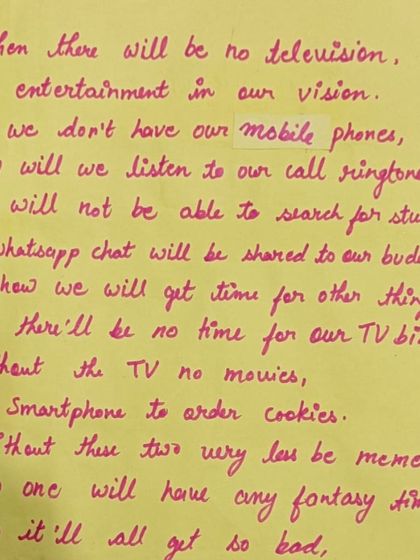 hen there will be no television,
entertainment in our vision.
we don't have our mobile phones,
will we listen to our call ringtone
will not be able to search for stu
whatsapp chat will be shared to our bud
how we will get time for other thin
there'll be no time for our TV bi
hout the TV no movies,
Smartphone to order cookies.
ithout these two very less be meme
one will have any fantasy tim
it'll all get so bad,